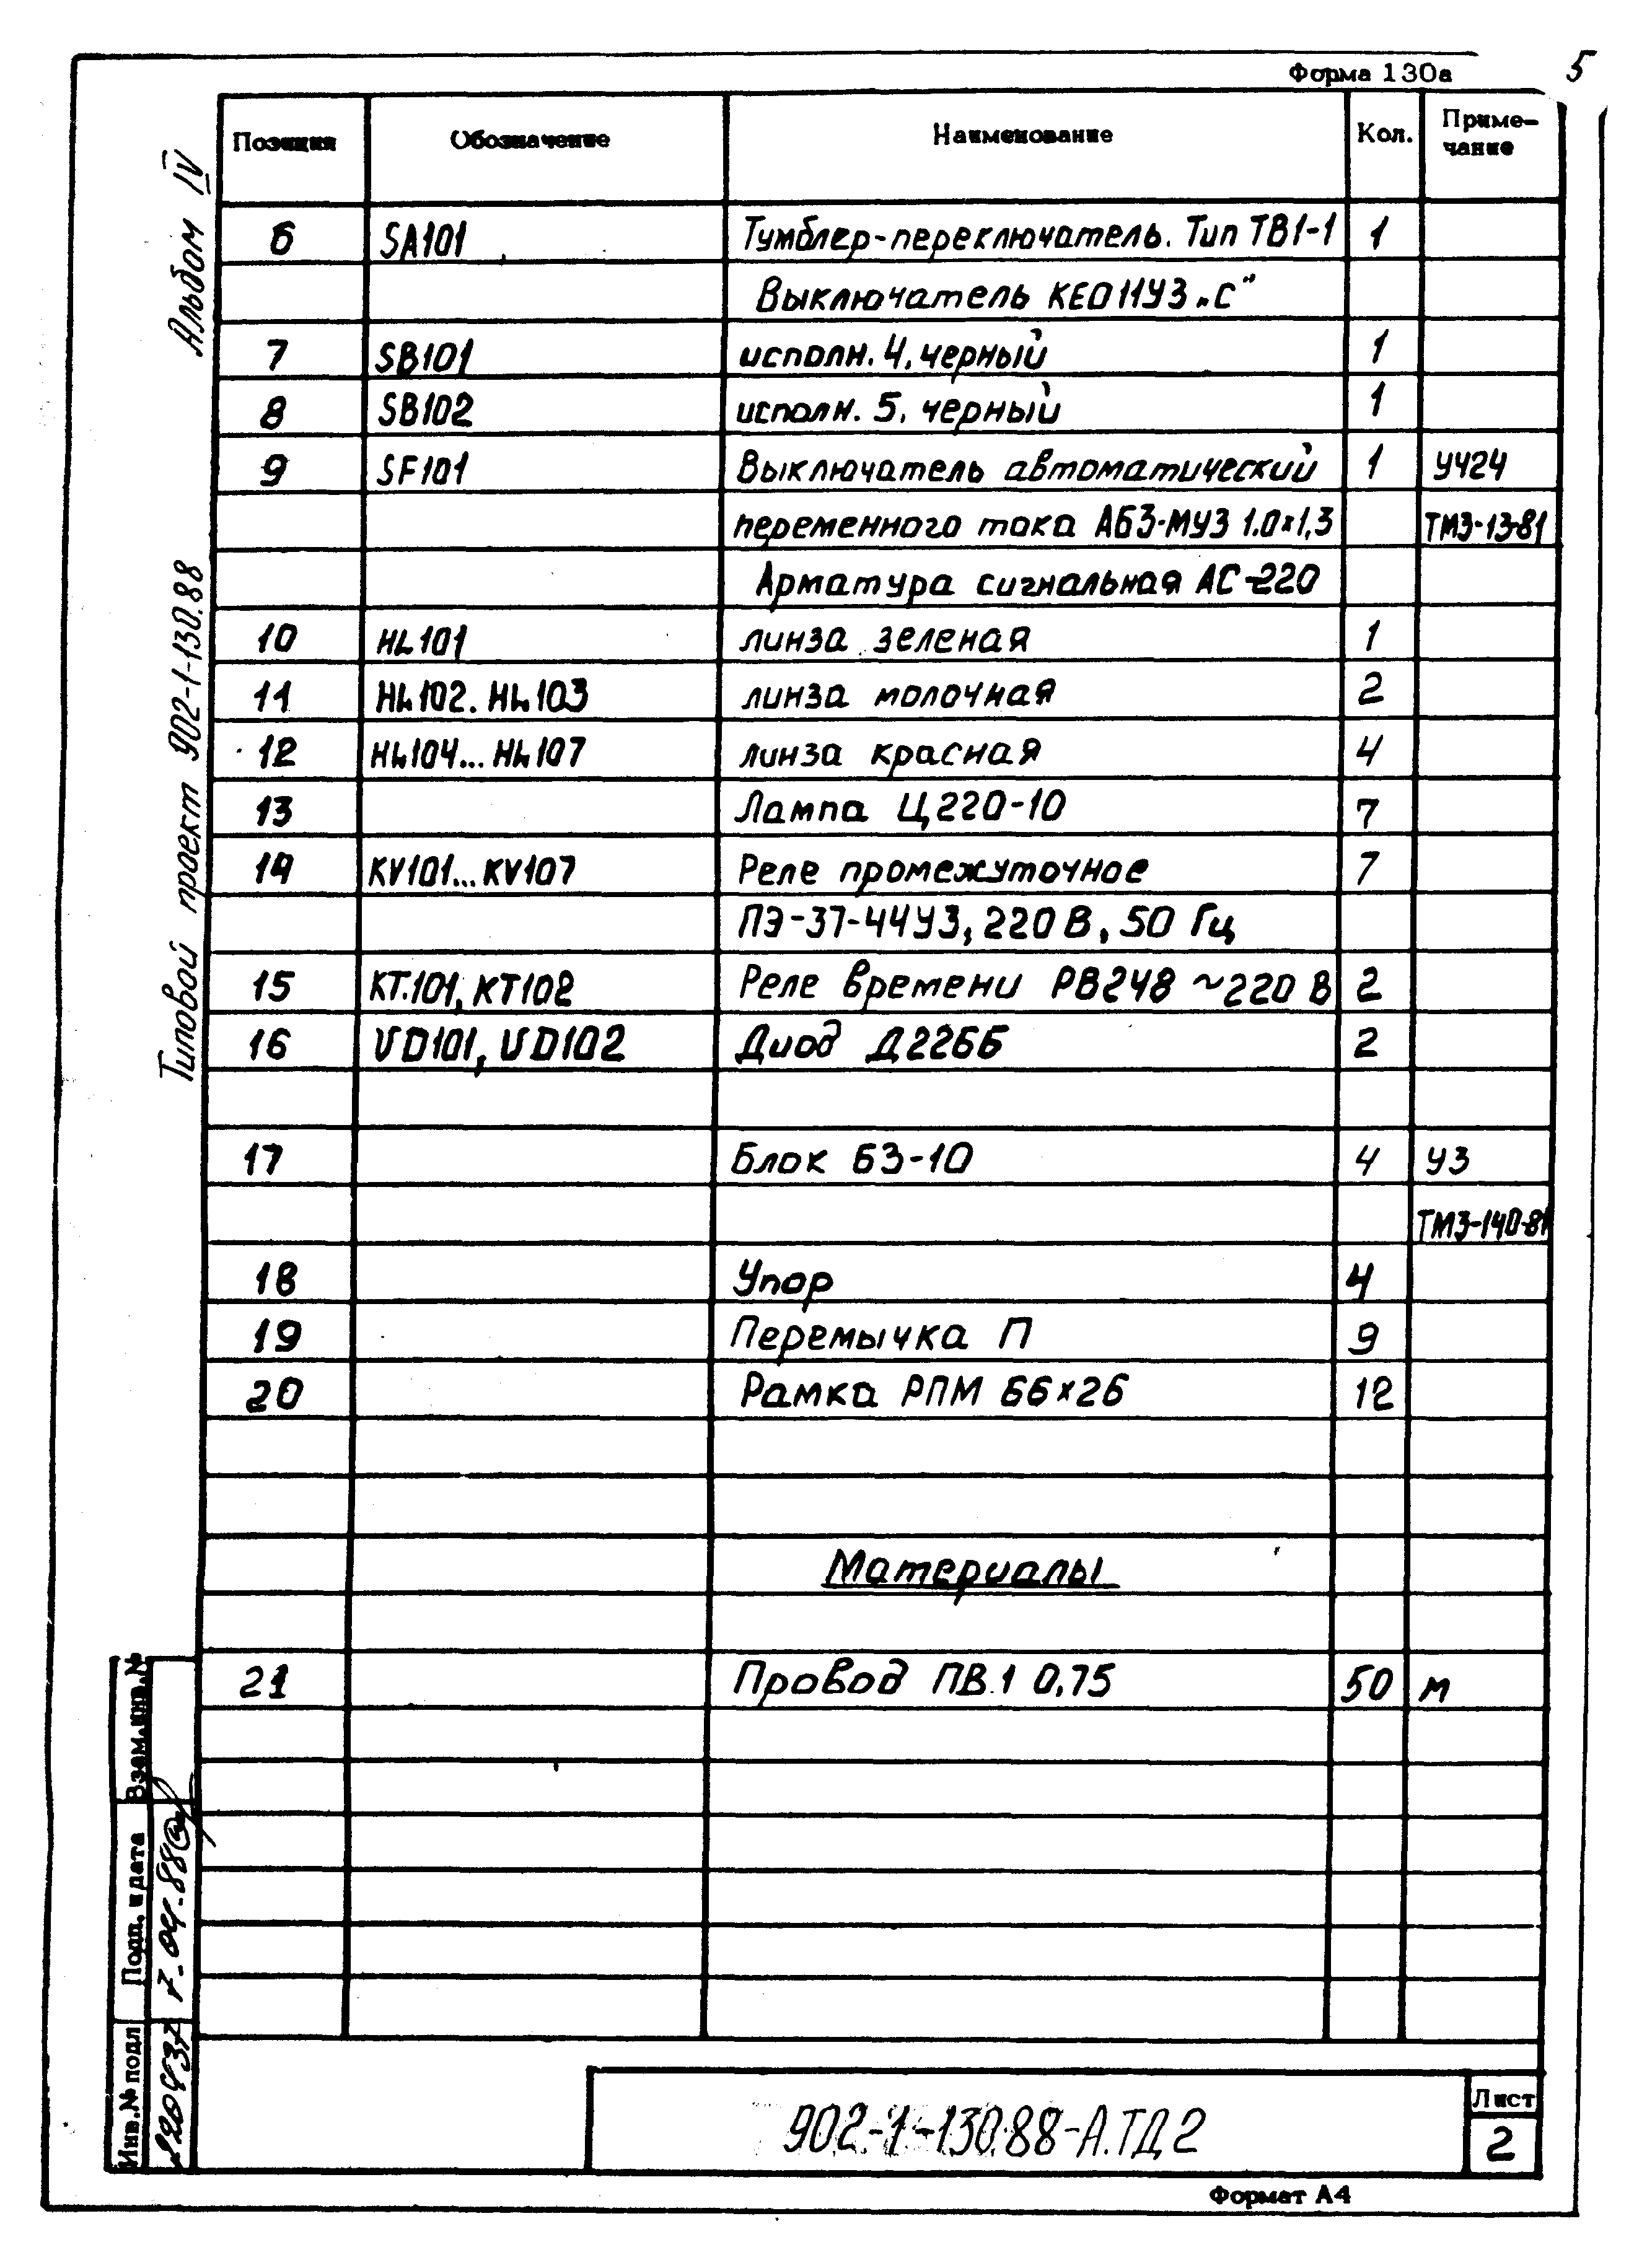 Форма 130а
5
Позиция Обозначение Наименование Кол. Приме-
чание
6 SA101 Тумблер-переключатель. Тип ТВ1-1 1
Выключатель КЕ011У3 „С"
7 SB101 исполн. 4, черный 1
8 SB102 исполн. 5, черный 1
9 SF101 Выключатель автоматический 1 УЧ24
переменного тока АБ3-МУ3 1.0×1,3 ТМ3-13-81
Арматура сигнальная АС-220
10 HL101 линза зеленая 1
11 HL102. HL103 линза молочная 2
12 HL104... HL107 линза красная 4
13 Лампа Ц220-10 7
14 KV101... KV107 Реле промежуточное 7
ПЭ-37-44У3, 220 В, 50 Гц
15 KT.101, KT102 Реле времени РВ248 ~220 В 2
16 VD101, VD102 Диод Д226Б 2
17 Блок БЗ-10 4 У3
ТМ3-140-81
18 Упор 4
19 Перемычка П 9
20 Рамка РПМ 66×26 12
Материалы
21 Провод ПВ.1 0,75 50 м
902-1-130.88-А.ТД2
Лист
2
Формат А4
Альбом IV
Типовой проект 902-1-130.88
Взам.инв.№
Подп. и дата
Инв.№ подл